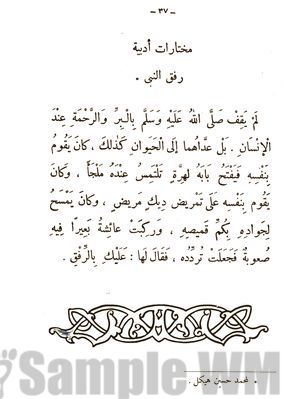 - ٣٧ -
مختارات أدبية
رفق النبى .
لَمْ يَقِفْ صَلَّى اللهُ عَلَيْهِ وَسَلَّمَ بِالْبِرِّ وَالرَّحْمَةِ عِنْدَ
الْإِنْسَانِ . بَلْ عَدَّاهُما إلى الْحَيَوانِ كَذلِكَ ، كانَ يَقُومُ
بِنَفْسِهِ فَيَفْتَحُ بَابَهُ لهرَّةٍ تَلْتَمِسُ عِنْدَهُ مَلْجَأً ، وَكَانَ
يَقُومُ بِنَفْسِهِ عَلَى تَمْريضِ دِيكٍ مَرِيضٍ ، وَكانَ يَمْسَحُ
لِجَوادِهِ بِكُمِّ قَميصِهِ ، وَرَكِبَتْ عَائِشَةُ بَعِيرًا فِيهِ
صُعوبَةٌ فَجَعَلَتْ تُرَدِّدُه ، فَقَالَ لهَا : عَلَيْكِ بِالرِّفْقِ .
• لمحمد حسين هيكل .
Sample.WM